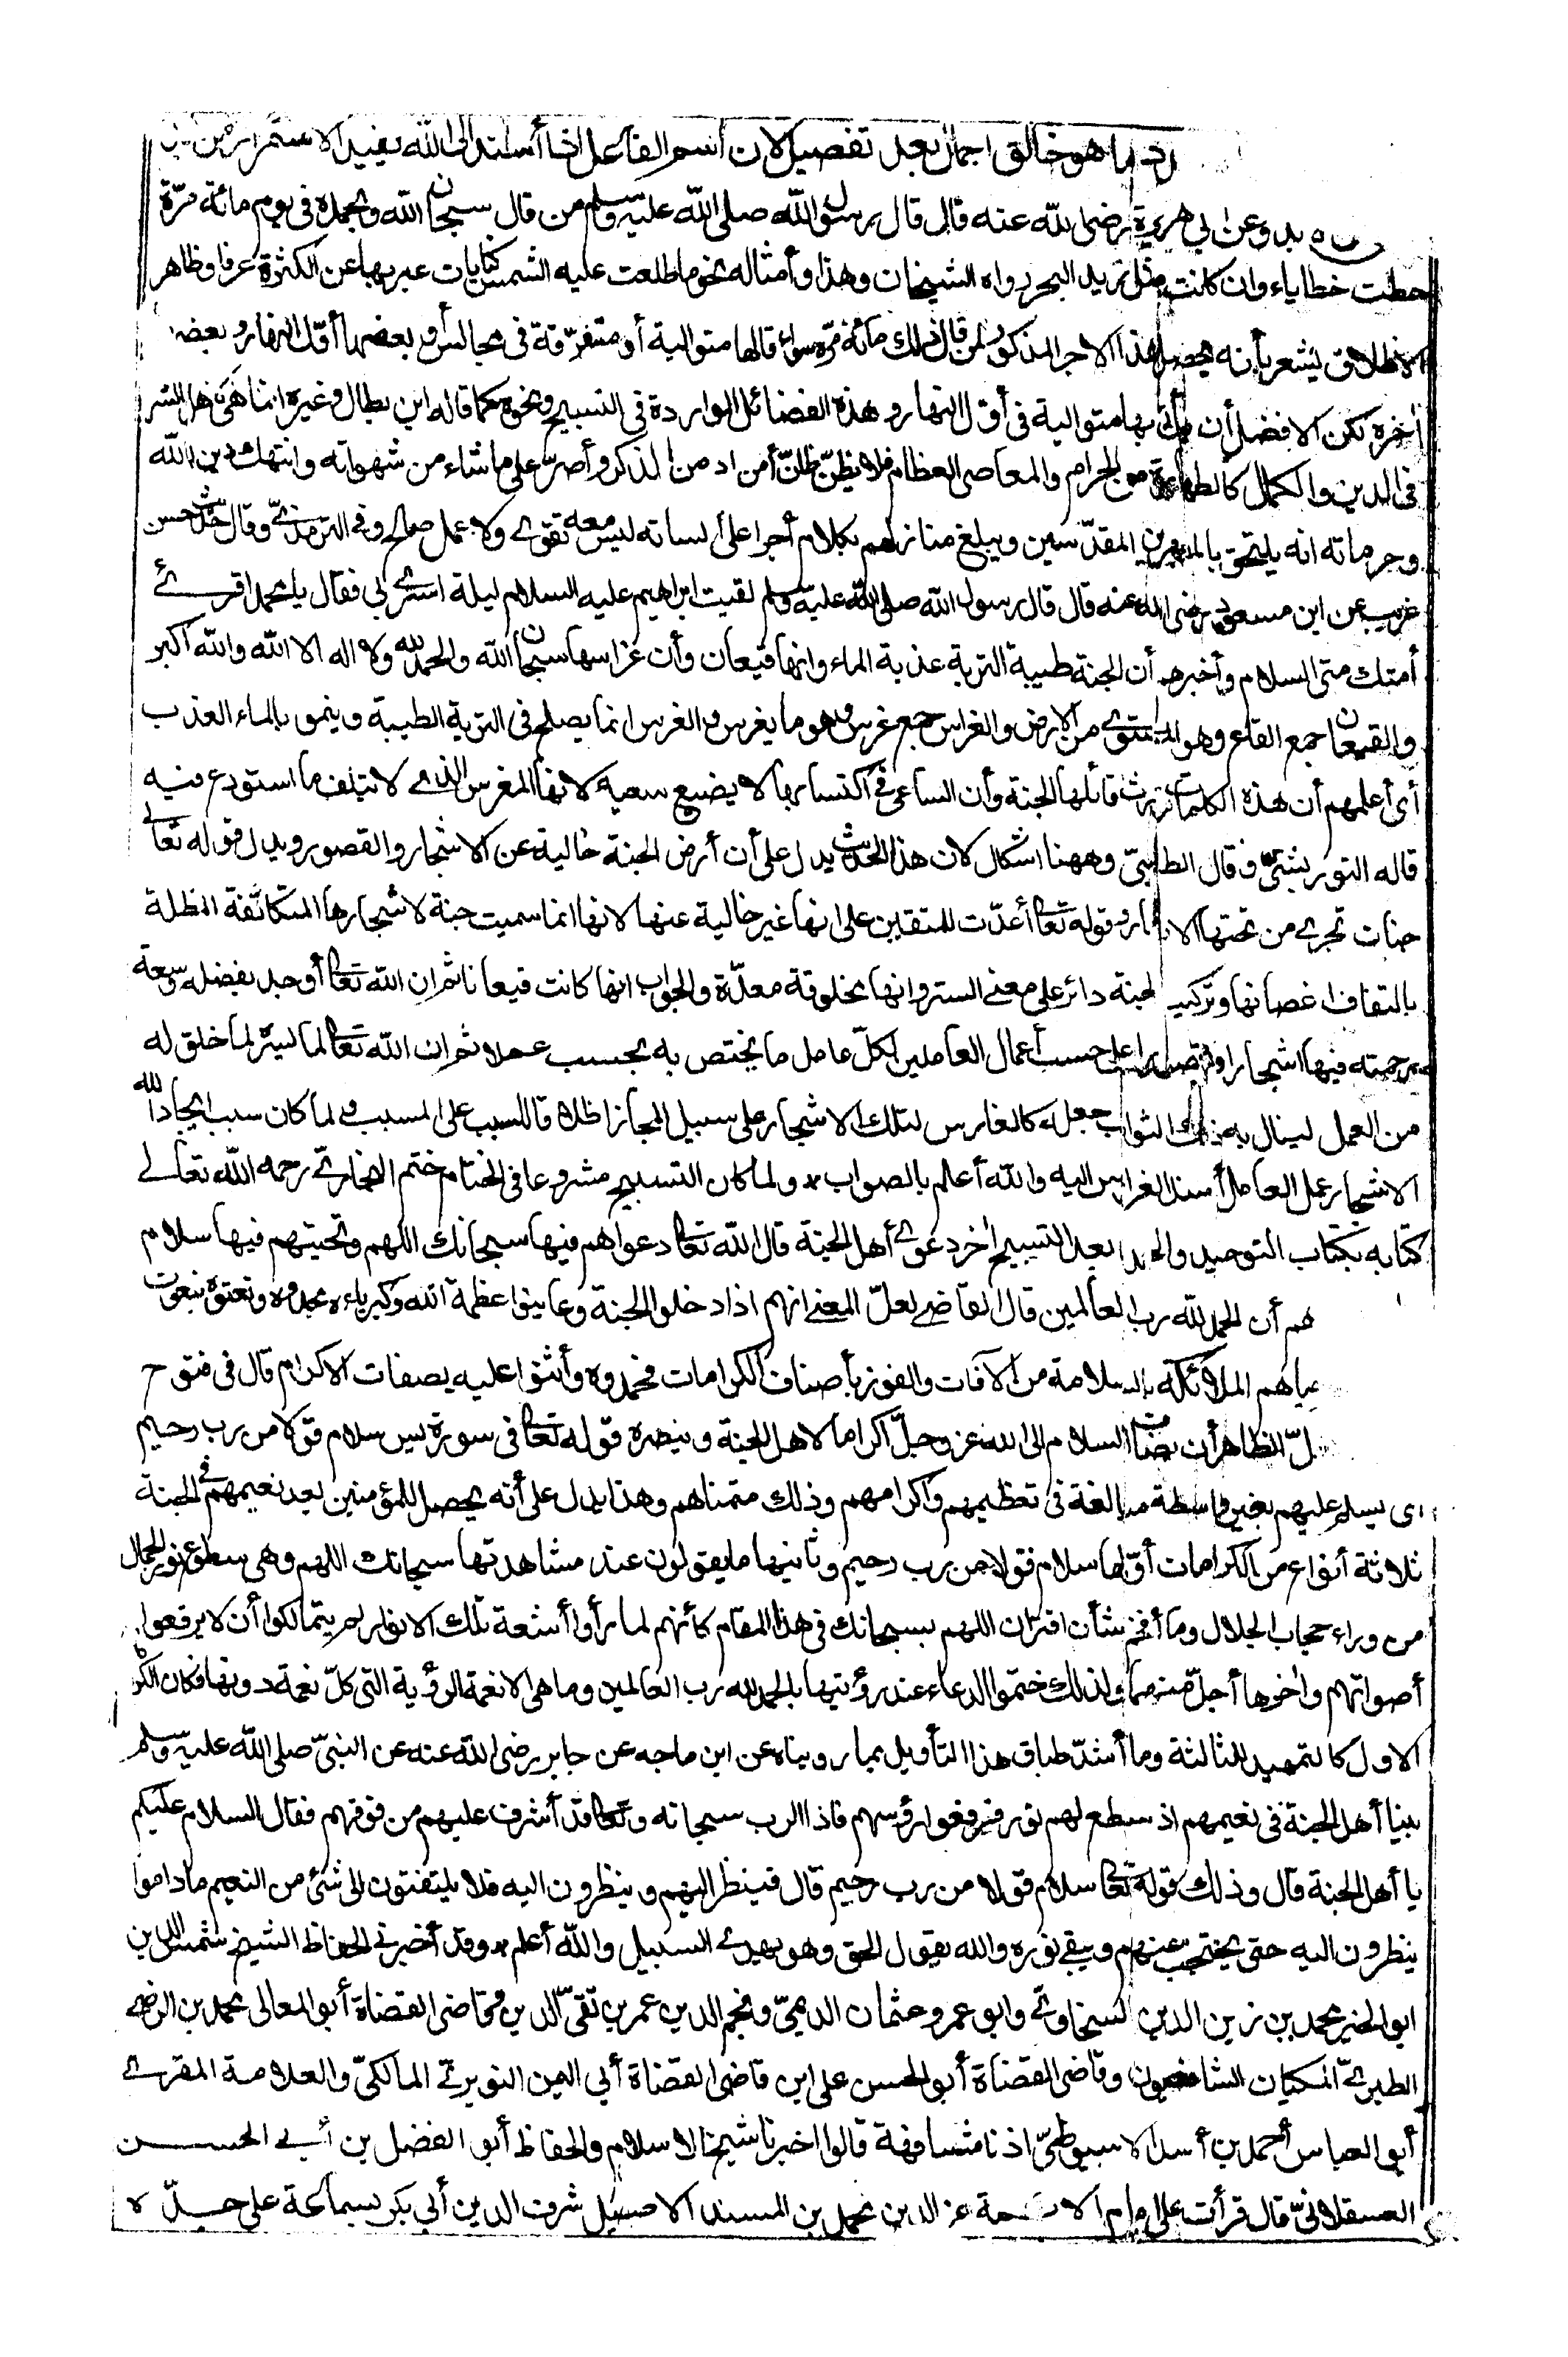 ما هو خالق اجمال بعد تفصيل لان اسم الفاعل اذا أسند الى الله يفيد الاستمرار من
وعن ابي هريرة رضى الله عنه قال قال رسول الله صلى الله عليه وسلم من قال سبحان الله وبحمده فى يوم مائة مرّة
حطت خطاياه وان كانت مثل زبد البحر رواه الشيخان وهذا وأمثاله نحو ما طلعت عليه الشمس كنايات عبر بها عن الكثرة عرفا وظاهر
الاطلاق يشعر بأنه يحصل هذا الاجر المذكور لمن قال ذلك مائة مرّة سواء قالها متوالية أو متفرّقة فى مجالس أو بعضها أوّل النهار وبعضها
اٰخره لكن الافضل أن يأتى بها متوالية فى أوّل النهار وهذه الفضائل الواردة فى التسبيح ونحوه كما قاله ابن بطال وغيره انما هى لاهل الشرف
فى الدين والكمال كالطهارة من الحرام والمعاصى العظام فلا يظنّ ظانّ أن من ادمن الذكر وأصرّ على ما شاء من شهواته وانتهك دين الله
وحرماته انه يلتحق بالمطهرين المقدّسين ويبلغ منازلهم بكلام أجرا على لسانه ليس معه تقوى ولا عمل صالح وفى الترمذىّ وقال حديث حسن
غريب عن ابن مسعود رضى الله عنه قال قال رسول الله صلى الله عليه وسلم لقيت ابراهيم عليه السلام ليلة اسرى بى فقال يا محمد اقرئ
أمتك منى السلام وأخبرهم أن الجنة طيبة التربة عذبة الماء وانها قيعان وأن غراسها سبحان الله والحمد لله ولا اله الا الله والله أكبر
والقيعان جمع القاع وهو المستوى من الارض والغراس جمع غرس وهو ما يغرس والغرس انما يصلح فى التربة الطيبة وينمو بالماء العذب
أى أعلمهم أن هذه الكلمات تورث قائلها الجنة وأن الساعى فى اكتسابها لا يضيع سعيه لانها المغرس الذى لا يتلف ما استودع فيه
قاله التوربشتىّ وقال الطيبىّ وههنا اشكال لان هذا الحديث يدل على أن أرض الجنة خالية عن الاشجار والقصور ويدل قوله تعالى
جنات تجرى من تحتها الانهار وقوله تعالى أعدّت للمتقين على انها غير خالية عنها لانها انما سميت جنة لاشجارها المتكاثفة المظلة
بالتفاف اغصانها وتركيب الجنة دائر على معنى الستر وانها مخلوقة معدّة والجواب انها كانت قيعانا ثم ان الله تعالى أوجد بفضله وسعة
رحمته فيها اشجارا وقصورا على حسب أعمال العاملين لكلّ عامل ما يختص به بحسب عمله ثم ان الله تعالى لما يسره لما خلق له
من العمل لينال به ذلك الثواب جعله كالغارس لتلك الاشجار على سبيل المجاز اطلاقا للسبب على المسبب ولما كان سبب ايجاد الله
الاشجار عمل العامل أسند الغراس اليه والله أعلم بالصواب * ولما كان التسبيح مشروعا فى الختام ختم البخارى رحمه الله تعالى
كتابه بكتاب التوحيد والحمد بعد التسبيح اٰخر دعوى أهل الجنة قال الله تعالى دعواهم فيها سبحانك اللهم وتحيتهم فيها سلام
هم أن الحمد لله رب العالمين قال القاضى لعلّ المعنى انهم اذا دخلوا الجنة وعاينوا عظمة الله وكبرياءه مجدوه ونعتوه بنعوت
حياهم الملائكة بالسلامة من الآفات والفوز بأصناف الكرامات فحمدوه وأثنوا عليه بصفات الاكرام قال فى فتوح
الظاهر أن يضاف السلام الى الله عز وجلّ اكراما لاهل الجنة وينصره قوله تعالى فى سورة يس سلام قولا من رب رحيم
اى يسلم عليهم بغير واسطة مبالغة فى تعظيمهم واكرامهم وذلك متمناهم وهذا يدل على أنه يحصل للمؤمنين بعد نعيمهم فى الجنة
ثلاثة أنواع من الكرامات أوّلها سلام قولا من رب رحيم وثانيها ما يقولون عند مشاهدتها سبحانك اللهم وهى سطوع نور الجمال
من وراء حجاب الجلال وما أفخم شأن اقتران اللهم بسبحانك فى هذا المقام كأنهم لما رأوا أشعة تلك الانوار لم يتمالكوا أن لا يرفعوا
أصواتهم واٰخرها أجلّ منهما ولذلك ختموا الدعاء عند رؤيتها بالحمد لله رب العالمين وما هى الا نعمة الرؤية التى كلّ نعمة دونها فكان
الاول كالتمهيد للثالثة وما أشدّ طباق هذا التأويل بما رويناه عن ابن ماجه عن جابر رضى الله عنه عن النبىّ صلى الله عليه وسلم
بينا أهل الجنة فى نعيمهم اذ سطع لهم نور فرفعوا رؤسهم فاذا الرب سبحانه وتعالى قد أشرف عليهم من فوقهم فقال السلام عليكم
يا أهل الجنة قال وذلك قوله تعالى سلام قولا من رب رحيم قال فينظر اليهم وينظرون اليه فلا يلتفتون الى شئ من النعيم ما داموا
ينظرون اليه حتى يحتجب عنهم ويبقى نوره والله يقول الحق وهو يهدى السبيل والله أعلم * وقد أخبرنى الحفاظ الشيخ شمس الدين
ابو الخير محمد بن زين الدين السخاوىّ وابو عمرو عثمان الديمىّ ونجم الدين عمر بن تقىّ الدين وقاضى القضاة أبو المعالى محمد بن الرضى
الطبرىّ المكيان الشافعيون وقاضى القضاة أبو الحسن على ابن قاضى القضاة أبي اليمن النويرىّ المالكىّ والعلامة المقرئ
أبو العباس أحمد بن أسد الاسيوطىّ اذنا مشافهة قالوا اخبرنا شيخ الاسلام والحفاظ أبو الفضل بن أبى الحسن
العسقلانىّ قال قرأت على امام الائمة عز الدين محمد بن المسند الاصيل شرف الدين أبي بكر بسماعه على جدّه